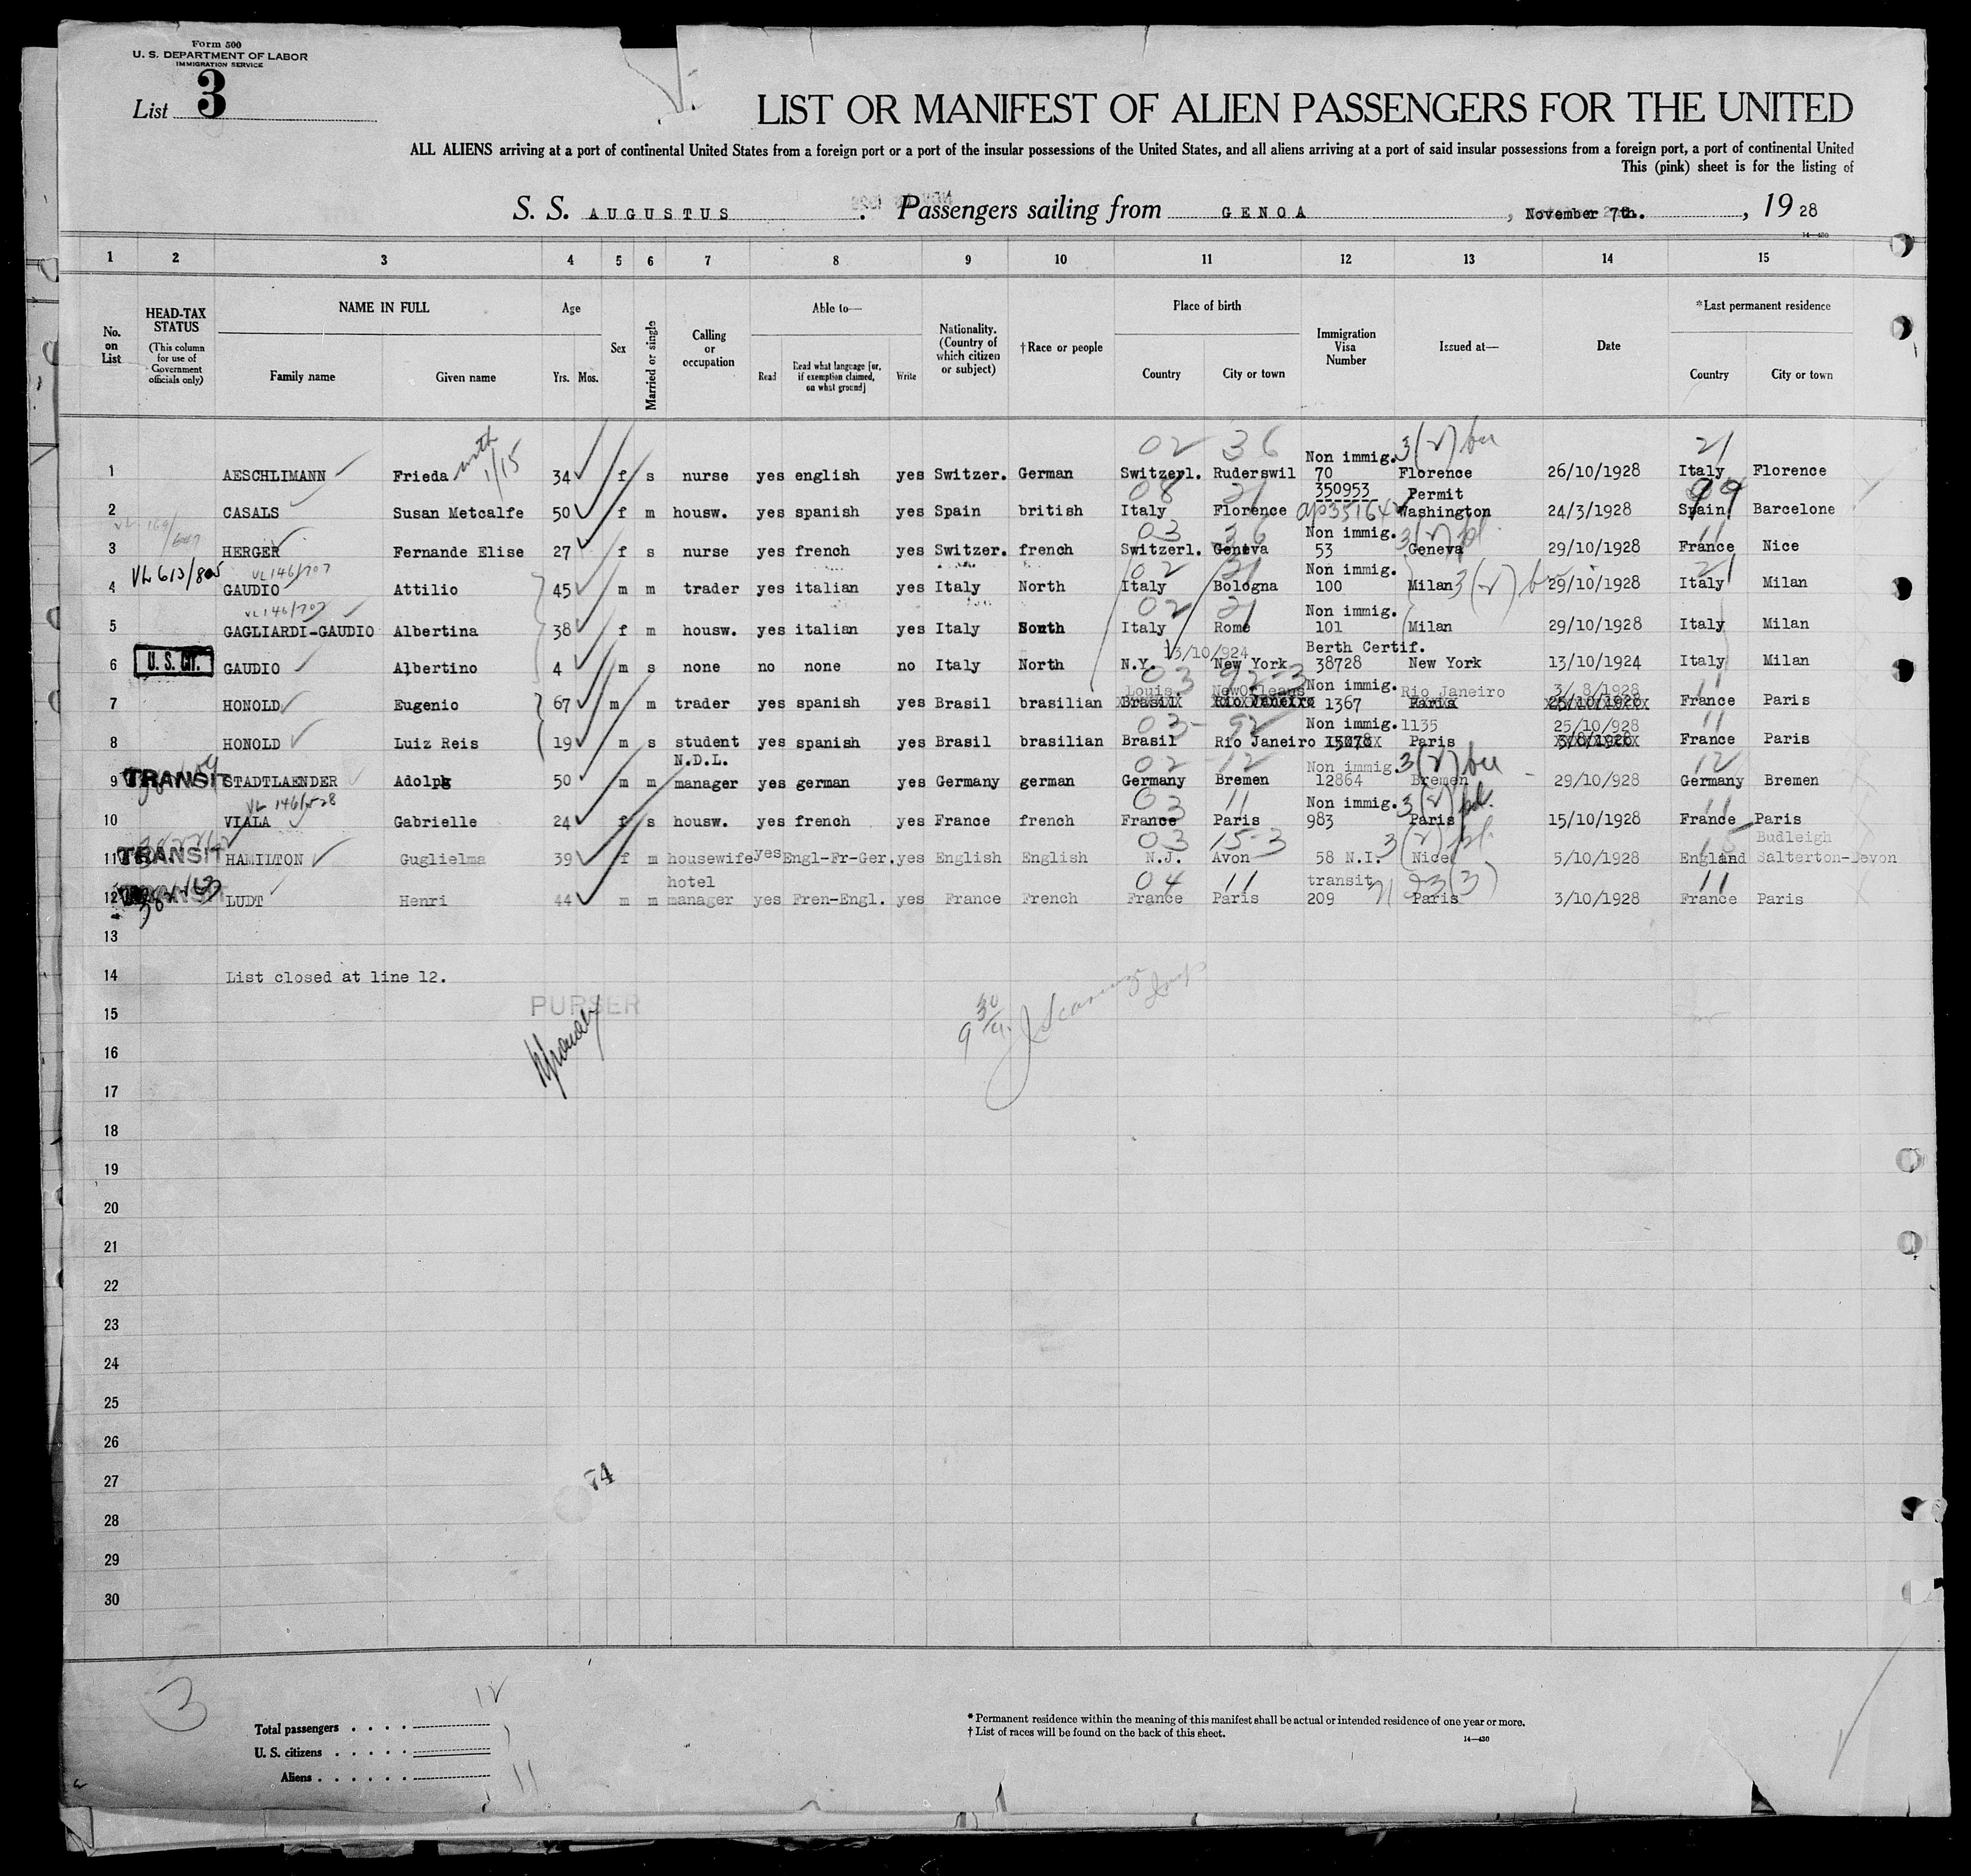 Form 500
U. S. DEPARTMENT OF LABOR
IMMIGRATION SERVICE
List 3
LIST OR MANIFEST OF ALIEN PASSENGERS FOR THE UNITED
ALL ALIENS arriving at a port of continental United States from a foreign port or a port of the insular possessions of the United States, and all aliens arriving at a port of said insular possessions from a foreign port, a port of continental United
This (pink) sheet is for the listing of
S. S. AUGUSTUS. Passengers sailing from GENOA, November 7th., 1928
14—430
1 2 3 4 5 6 7 8 9 10 11 12 13 14 15
No. on List
HEAD-TAX STATUS
(This column for use of Government officials only)
NAME IN FULL
Family name Given name
Age
Yrs. Mos.
Sex
Married or single
Calling or occupation
Able to—
Read Read what language [or, if exemption claimed, on what ground] Write
Nationality. (Country of which citizen or subject)
†Race or people
Place of birth
Country City or town
Immigration Visa Number
Issued at—
Date
*Last permanent residence
Country City or town
with 1/15 02 36 Non immig. 3(2) 21
1 AESCHLIMANN Frieda 34 f s nurse yes english yes Switzer. German Switzerl. Ruderswil 70 Florence 26/10/1928 Italy Florence
08 21 350953 Permit
2 CASALS Susan Metcalfe 50 f m housw. yes spanish yes Spain british Italy Florence Washington 24/3/1928 Spain Barcelone
03 36 Non immig.
3 HERGER Fernande Elise 27 f s nurse yes french yes Switzer. french Switzerl. Geneva 53 Geneva 29/10/1928 France Nice
VL 613/805 VL 146/707 02 21 Non immig. 21
4 GAUDIO Attilio 45 m m trader yes italian yes Italy North Italy Bologna 100 Milan 3(2) 29/10/1928 Italy Milan
VL 146/707 02 21 Non immig.
5 GAGLIARDI-GAUDIO Albertina 38 f m housw. yes italian yes Italy South Italy Rome 101 Milan 29/10/1928 Italy Milan
U. S. CIT. 13/10/924 Berth Certif.
6 GAUDIO Albertino 4 m s none no none no Italy North N.Y. New York 38728 New York 13/10/1924 Italy Milan
03 92-3 Louis. NewOrleans Non immig. Rio Janeiro 3/8/1928 11
7 HONOLD Eugenio 67 m m trader yes spanish yes Brasil brasilian Brasil Rio Janeiro 1367 Paris 25/10/1928 France Paris
03- 92 Non immig. 1135 25/10/928 11
8 HONOLD Luiz Reis 19 m s student yes spanish yes Brasil brasilian Brasil Rio Janeiro Paris 3/8/1928 France Paris
N.D.L. 02 12 Non immig. 3(2) 12
9 TRANSIT STADTLAENDER Adolph 50 m m manager yes german yes Germany german Germany Bremen 12864 Bremen 29/10/928 Germany Bremen
VL 146/528 03 11 Non immig. 3(2) 11
10 VIALA Gabrielle 24 f s housw. yes french yes France french France Paris 983 Paris 15/10/1928 France Paris
03 15-3 3(2) 15 Budleigh
11 TRANSIT HAMILTON Guglielma 39 f m housewife yes Engl-Fr-Ger. yes English English N.J. Avon 58 N.I. Nice 5/10/1928 England Salterton-Devon
hotel 04 11 transit 3(3) 11
12 TRANSIT LUDT Henri 44 m m manager yes Fren-Engl. yes France French France Paris 209 Paris 3/10/1928 France Paris
13
14 List closed at line 12.
PURSER
15
9 30
16
17
18
19
20
21
22
23
24
25
26
27
74
28
29
30
3
Total passengers 12
U. S. citizens 1
Aliens 11
* Permanent residence within the meaning of this manifest shall be actual or intended residence of one year or more.
† List of races will be found on the back of this sheet.
14—430